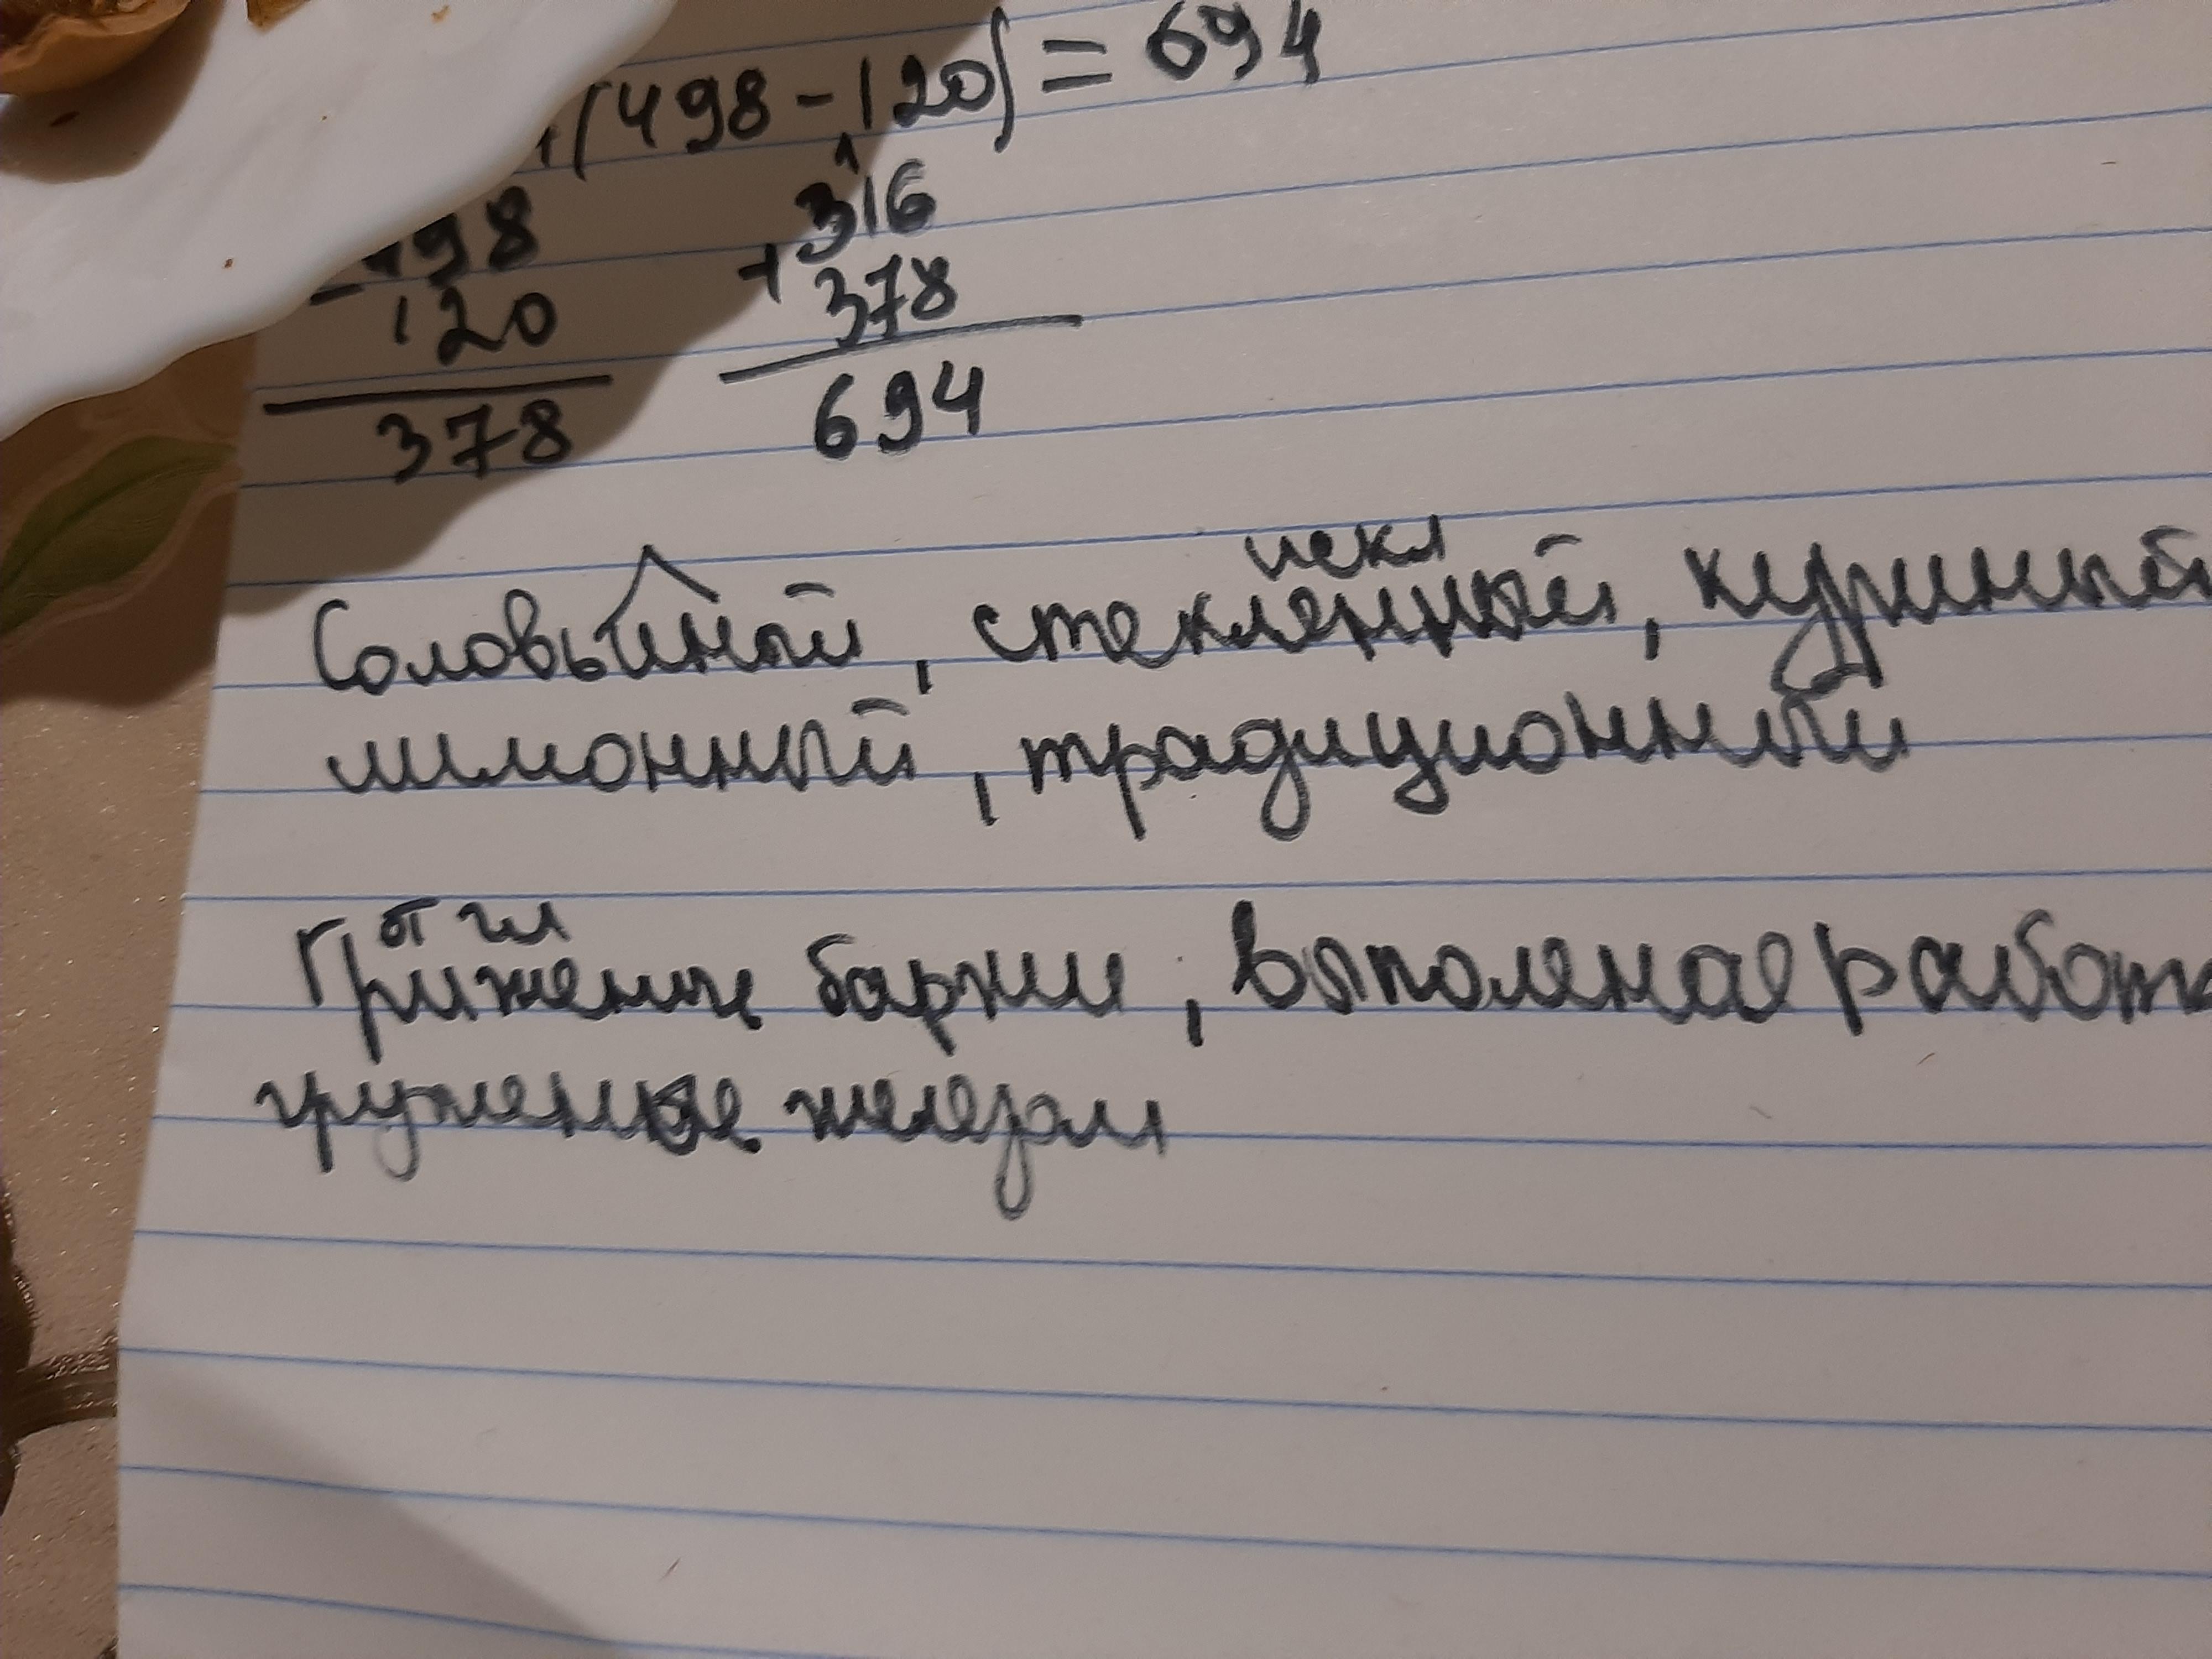 +(498-120)=694
498 1
-120 316
378 +378
694
искл
Соловьиный, стекленный, куриный
лимонный, традиционный
от гл
Гружение баржи, выполеная работа
груженые железом